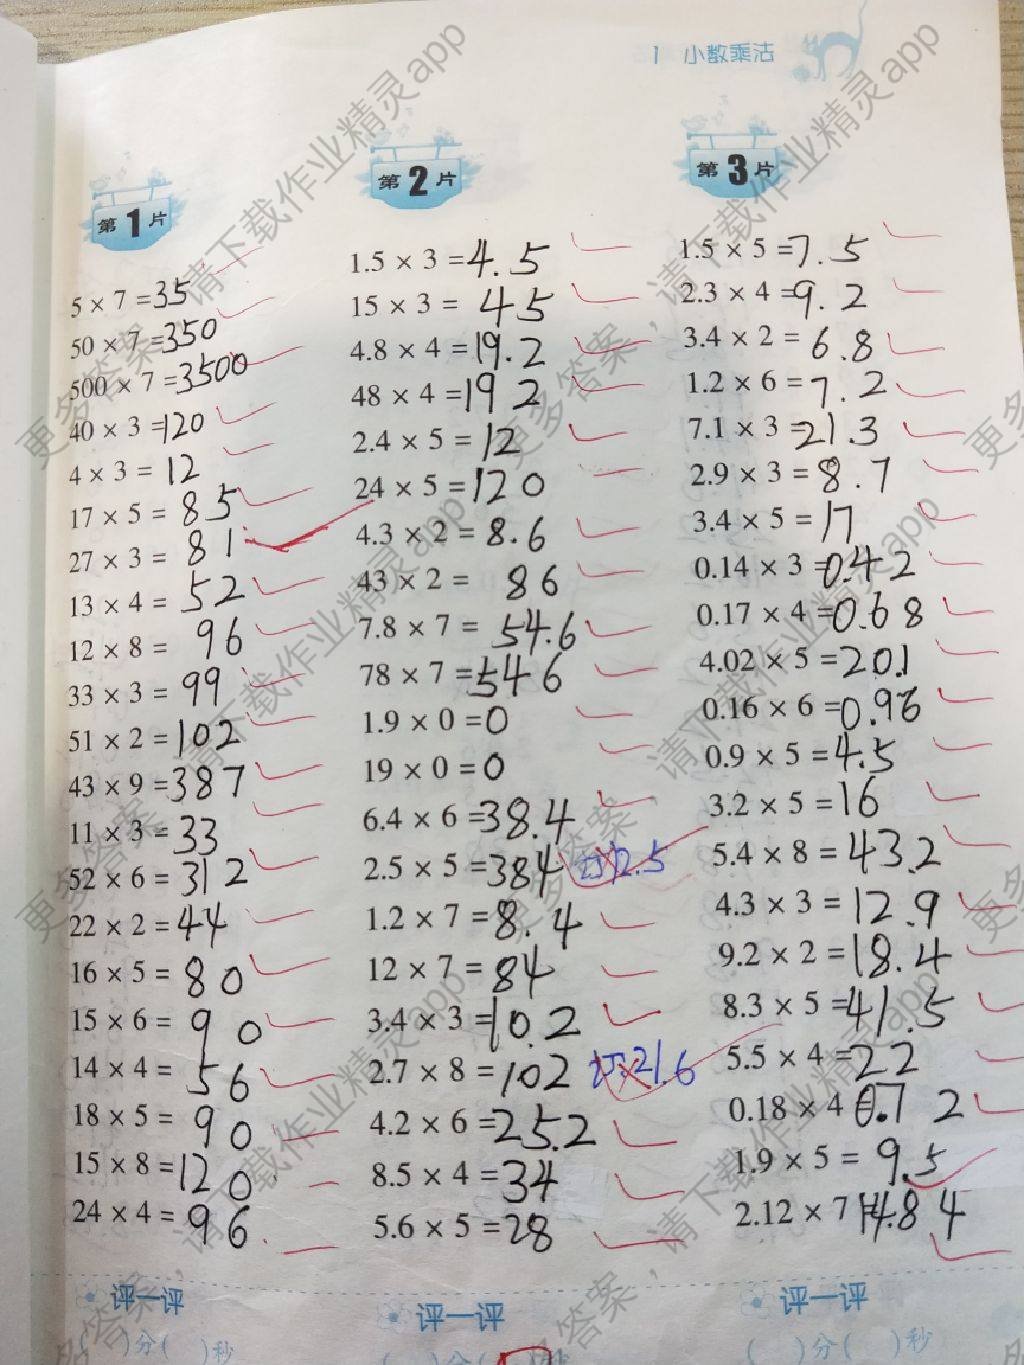 1 小数乘法
第1片
5 × 7 =35
50 × 7 =350
500 × 7 =3500
40 × 3 =120
4 × 3 = 12
17 × 5 = 85
27 × 3 = 81
13 × 4 = 52
12 × 8 = 96
33 × 3 = 99
51 × 2 =102
43 × 9 =387
11 × 3 = 33
52 × 6 = 312
22 × 2 = 44
16 × 5 = 80
15 × 6 = 90
14 × 4 = 56
18 × 5 = 90
15 × 8 =120
24 × 4 = 96
评一评
( )分( )秒
第2片
1.5 × 3 =4.5
15 × 3 = 45
4.8 × 4 =19.2
48 × 4 =192
2.4 × 5 = 12
24 × 5 =120
4.3 × 2 = 8.6
43 × 2 = 86
7.8 × 7 = 54.6
78 × 7 =546
1.9 × 0 =0
19 × 0 =0
6.4 × 6 =38.4
2.5 × 5 =384 订12.5
1.2 × 7 = 8.4
12 × 7 = 84
3.4 × 3 =10.2
2.7 × 8 =102 订:21.6
4.2 × 6 =25.2
8.5 × 4 =34
5.6 × 5 =28
评一评
( )分( )秒
第3片
1.5 × 5 =7.5
2.3 × 4 =9.2
3.4 × 2 = 6.8
1.2 × 6 = 7.2
7.1 × 3 =21.3
2.9 × 3 = 8.7
3.4 × 5 = 17
0.14 × 3 =0.42
0.17 × 4 =0.68
4.02 × 5 =20.1
0.16 × 6 =0.96
0.9 × 5 =4.5
3.2 × 5 =16
5.4 × 8 = 43.2
4.3 × 3 = 12.9
9.2 × 2 =18.4
8.3 × 5 =41.5
5.5 × 4 =22
0.18 × 4 =0.72
1.9 × 5 = 9.5
2.12 × 7 =14.84
评一评
( )分( )秒
请下载作业精灵app
更多答案，请下载作业精灵app
请下载作业精灵app
更多答案，请下载作业精灵app
更多答案，请下载作业精灵app
更多答案，
更多答案，请下载作业精灵app
更多答案，请下载作业精灵app
更多答案，